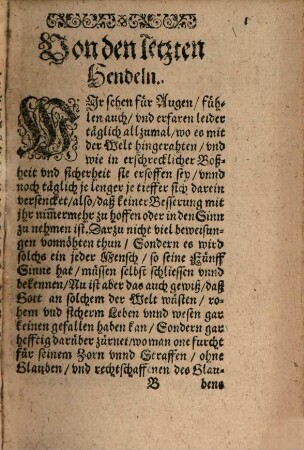 Von den letzten
Hendeln.
WIr sehen für Augen / füh-
len auch / vnd erfaren leider
täglich allzumal / wo es mit
der Welt hingerahten / vnd
wie in erschrecklicher Boß-
heit vnd sicherheit sie ersoffen sey / vnnd
noch täglich je lenger je tieffer sich darein
versencket / also / daß keiner Besserung mit
jhr nimmermehr zu hoffen oder in den Sinn
zu nehmen ist. Darzu nicht viel beweisun-
gen vonnöhten thun / Sondern es wird
solchs ein jeder Mensch / so seine Fünff
Sinne hat / müssen selbst schliessen vnnd
bekennen / Nu ist aber das auch gewiß / daß
Gott an solchem der Welt wüsten / ro-
hem vnd sicherm Leben vnnd wesen gar
keinen gefallen haben kan / Sondern gar
hefftig darüber zürnet / wo man one furcht
für seinem Zorn vnnd Straffen / ohne
Glauben / vnd rechtschaffenen des Glau-
B bens